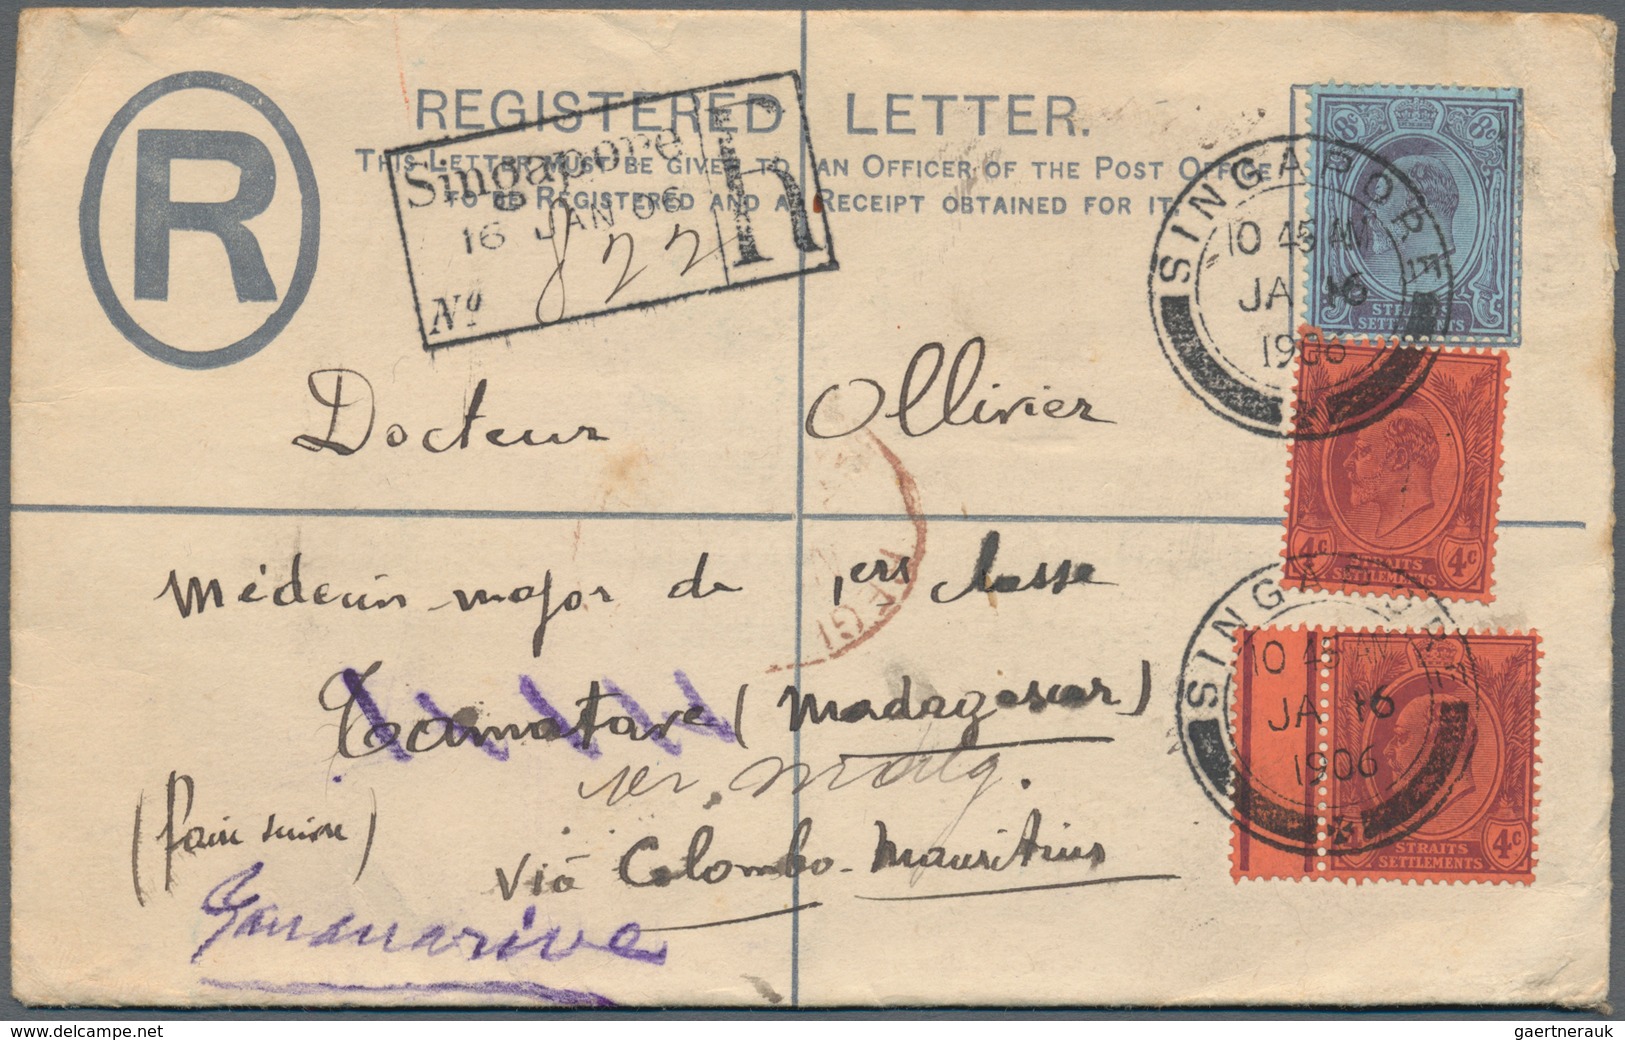 REGISTERED LETTER.
THIS LETTER MUST BE GIVEN TO AN OFFICER OF THE POST OFFICE
TO BE REGISTERED AND A RECEIPT OBTAINED FOR IT.
R
Singapore
16 JAN 06
R
No 822
8c 8c
STRAITS
SETTLEMENTS
SINGAPORE
10 45 AM
JA 16
1906
Docteur Ollivier
4c STRAITS 4c
SETTLEMENTS
Médecin-major de 1ere classe
REGI
Tamatave (Madagascar)
SINGAPORE
10 45 AM
JA 16
1906
STRAITS 4c
SETTLEMENTS
(faire suivre)
via Colombo-Mauritius
Tananarive
www.delcampe.net
gaertnerauk